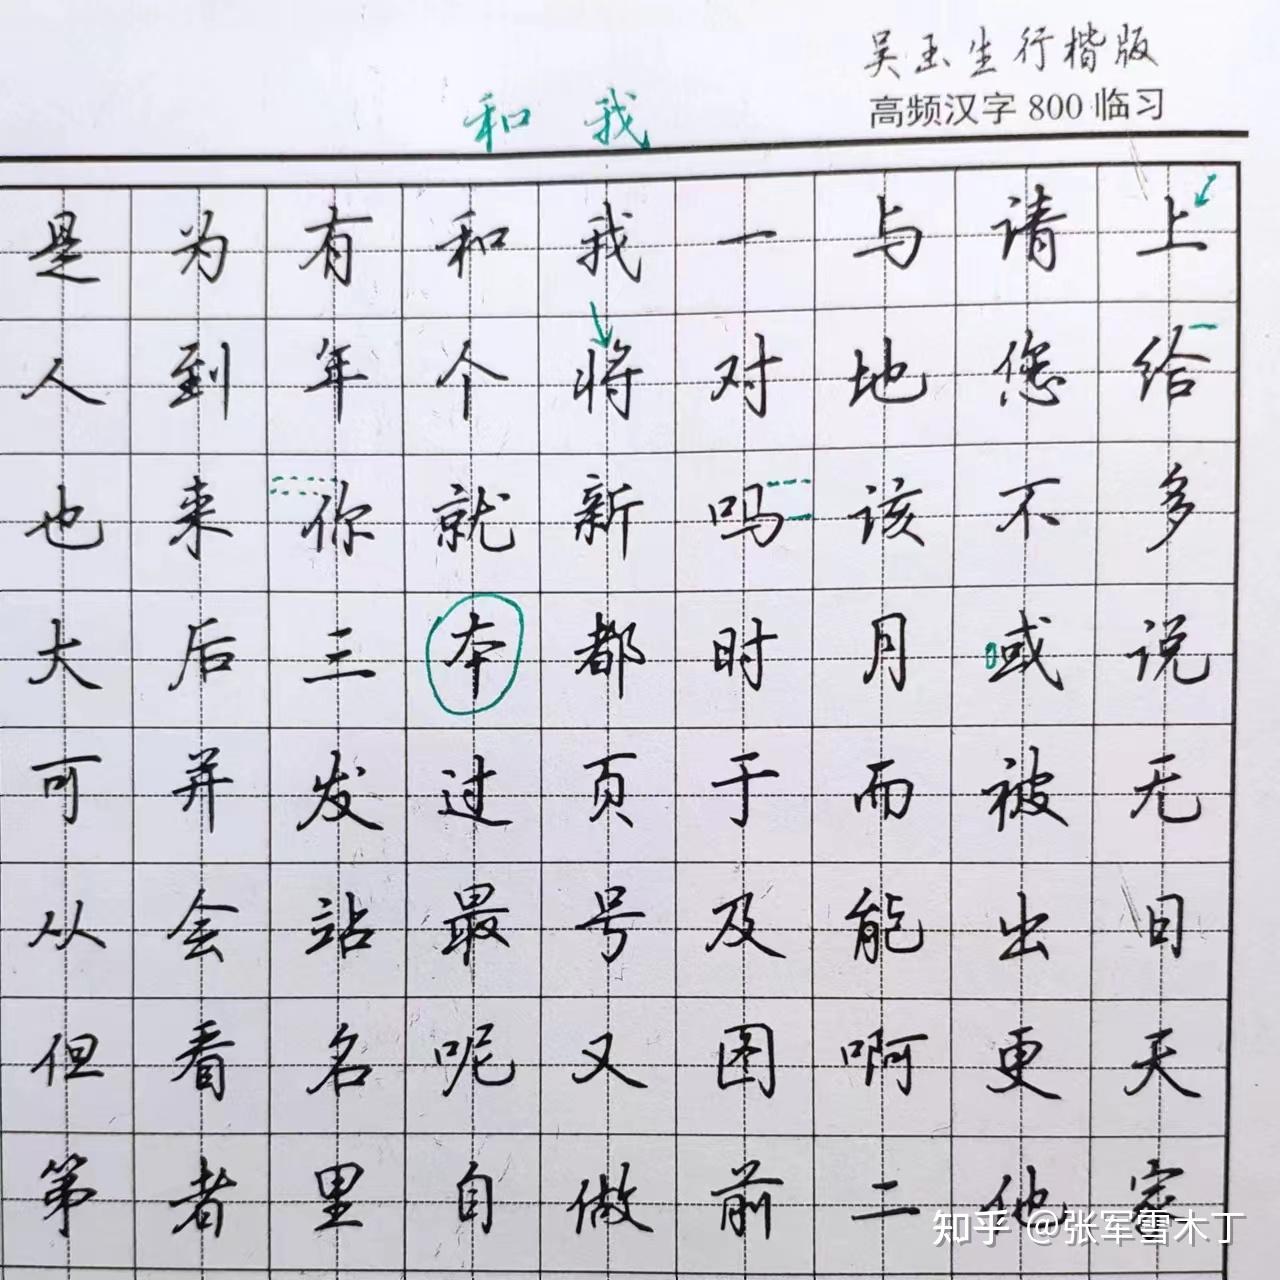 吴玉生行楷版
高频汉字 800 临习
和 我
是 为 有 和 我 一 与 请 上
人 到 年 个 将 对 地 您 给
也 来 你 就 新 吗 该 不 多
大 后 三 本 都 时 月 或 说
可 并 发 过 页 于 而 被 无
从 会 站 最 号 及 能 出 日
但 看 名 呢 又 图 啊 更 天
第 者 里 自 做 前 二 他 家
知乎 @张军雪木丁